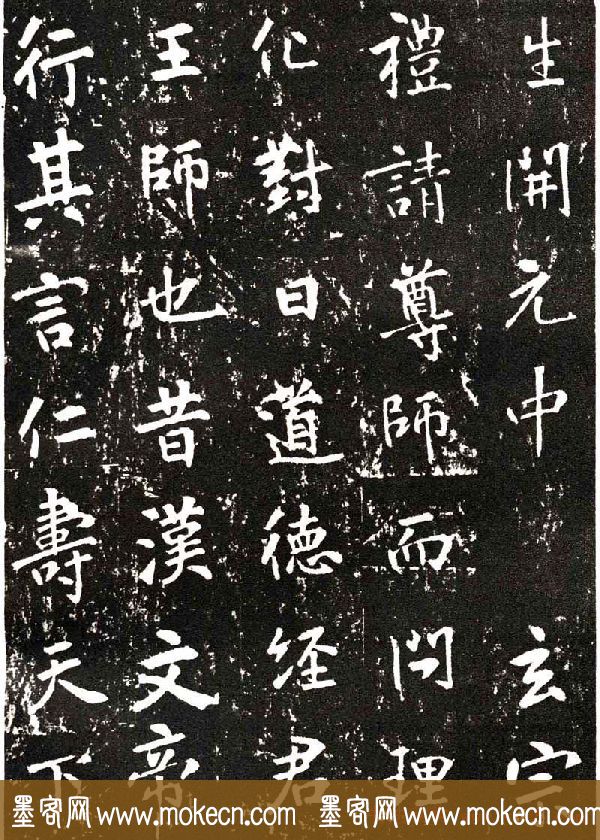 生開元中 玄宗
禮請尊師而問理
化對曰道德经君
王師也昔漢文帝
行其言仁壽天下
墨客网 www.mokecn.com 墨客网 www.mokecn.com